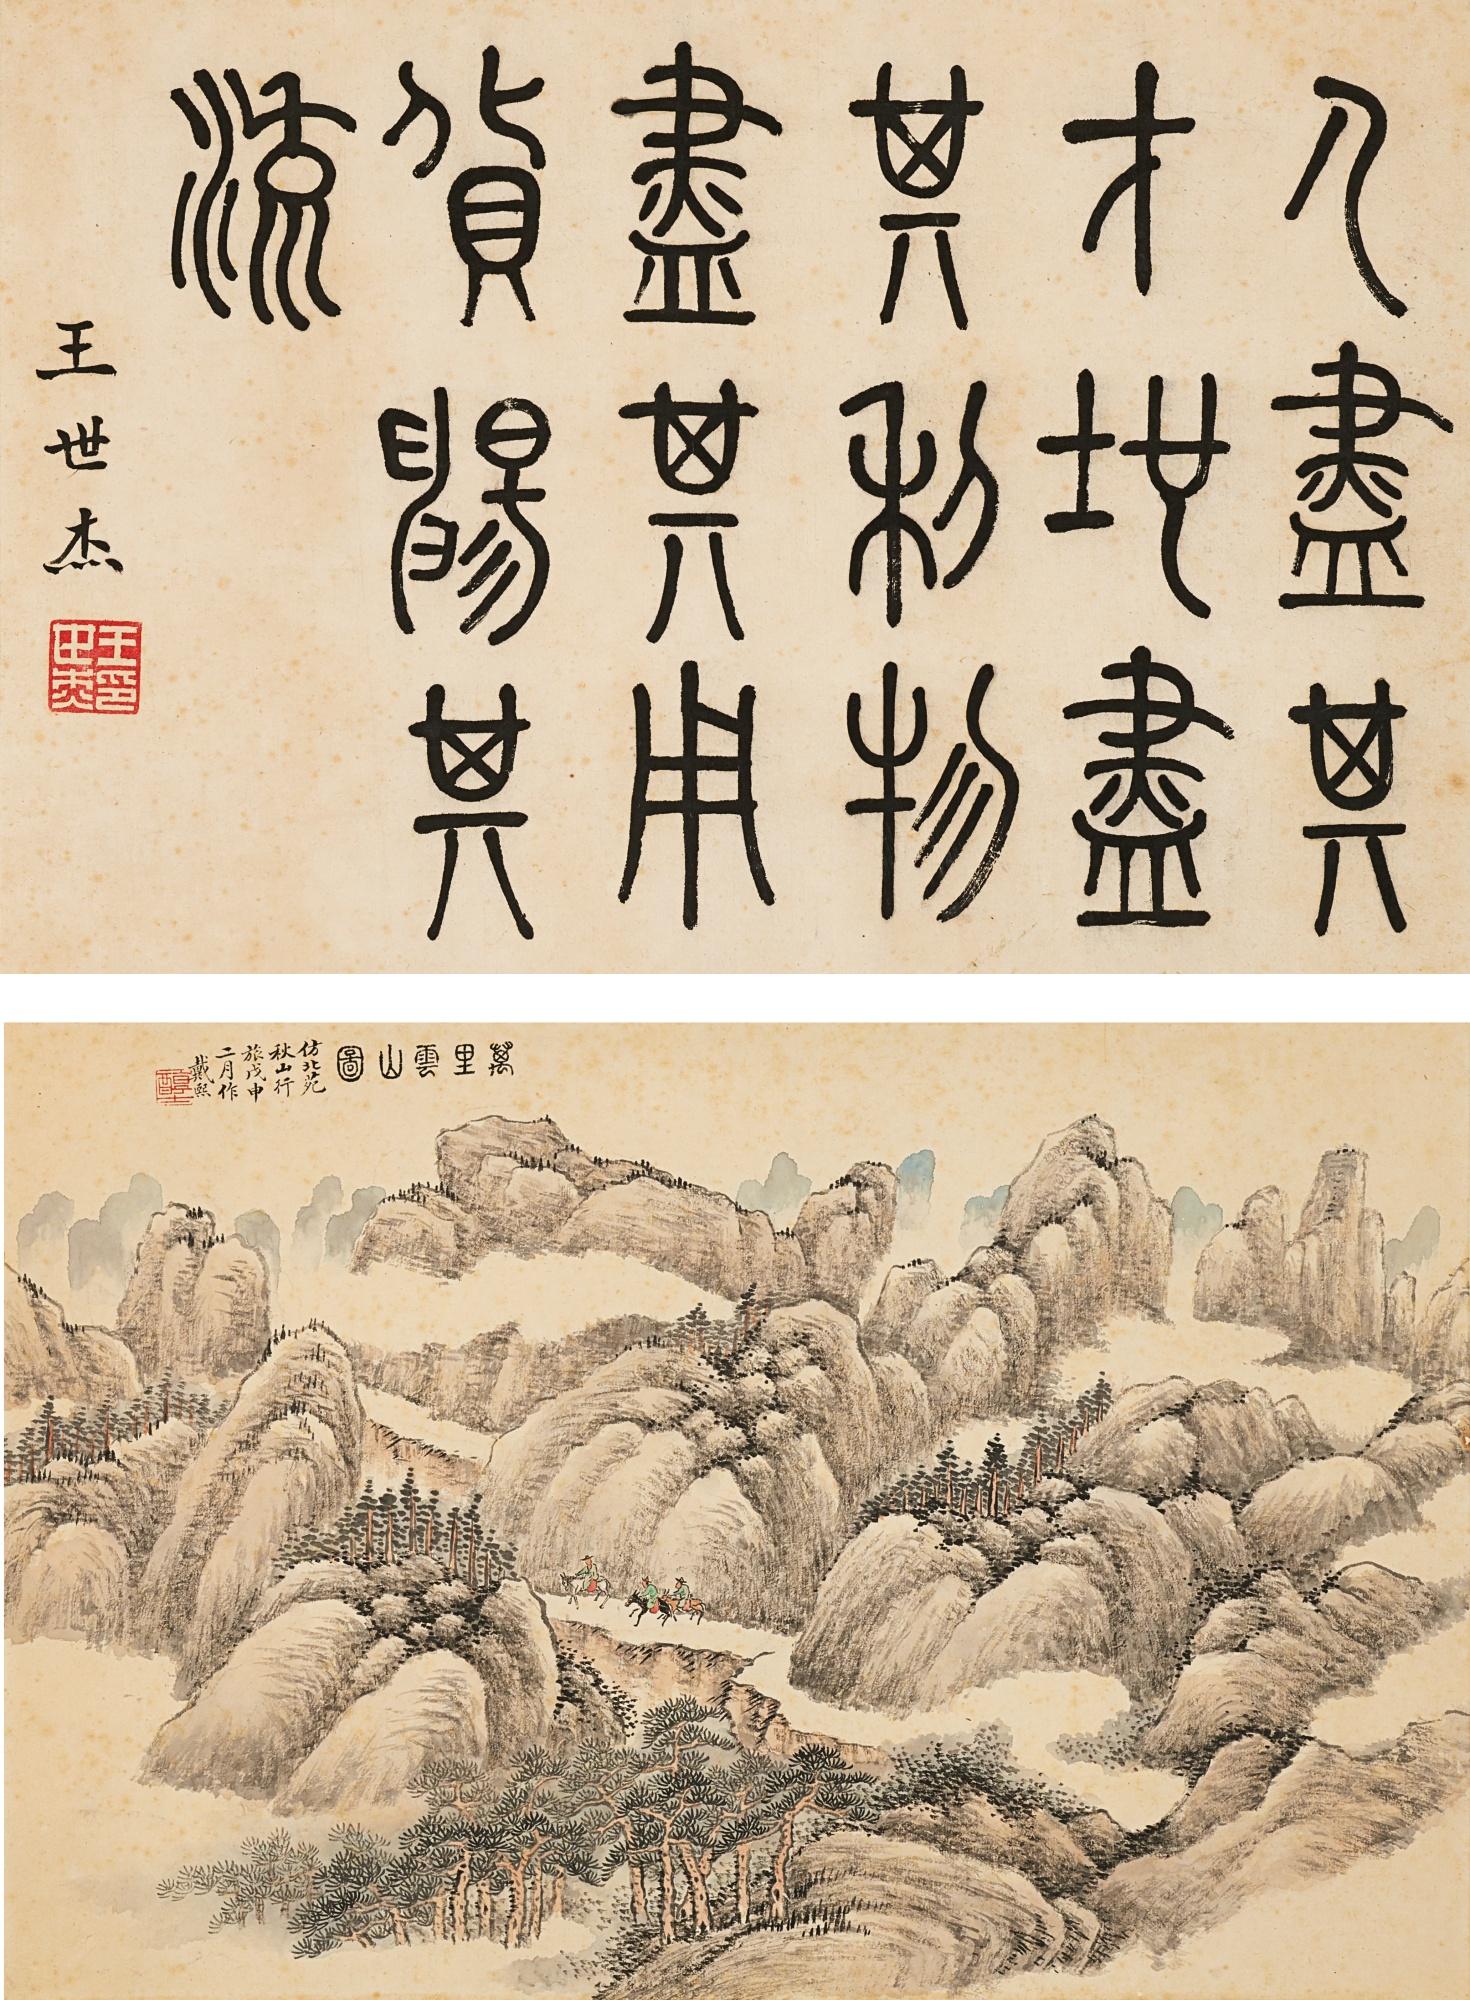 人盡其
才地盡
其利物
盡其用
貨暢其
流
王世杰
萬里雲山圖
仿北苑
秋山行
旅戊申
二月作
戴熙